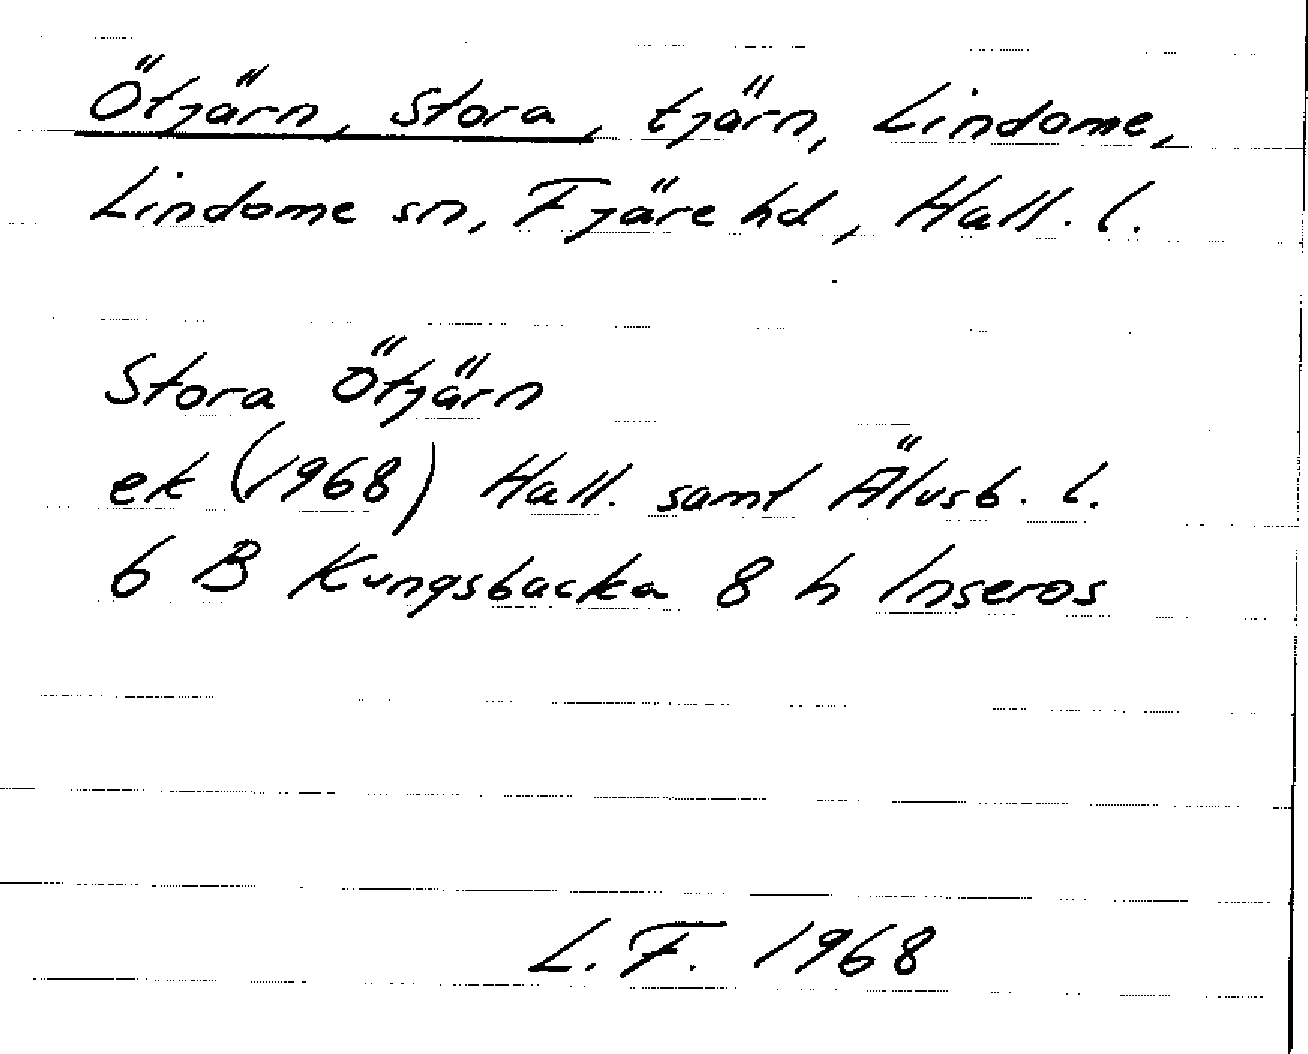 Ötjärn, Stora, tjärn, Lindome,
Lindome sn, Fjäre hd, Hall. l.
Stora Ötjärn
ek (1968) Hall. samt Älvsb. l.
6 B Kungsbacka 8 h Inseros
L.F. 1968